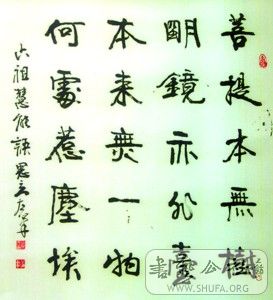 菩提本無樹
明鏡亦非臺
本来無一物
何處惹塵埃
六祖慧能
WWW.SHUFA.ORG